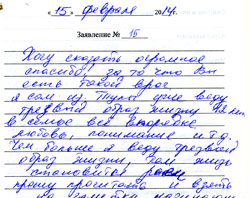 « 15 » февраля 2014г.
Заявление № 16
Хочу сказать огромное
спасибо, за то что Вы
есть такой врач
я сам из Тулы уже веду
трезвый образ жизни
в семье всё впорядке
любовь, понимание и т.д.
Чем больше я веду трезвый
образ жизни, тем жизнь
становится
прошу прочитать и взять
на заметку